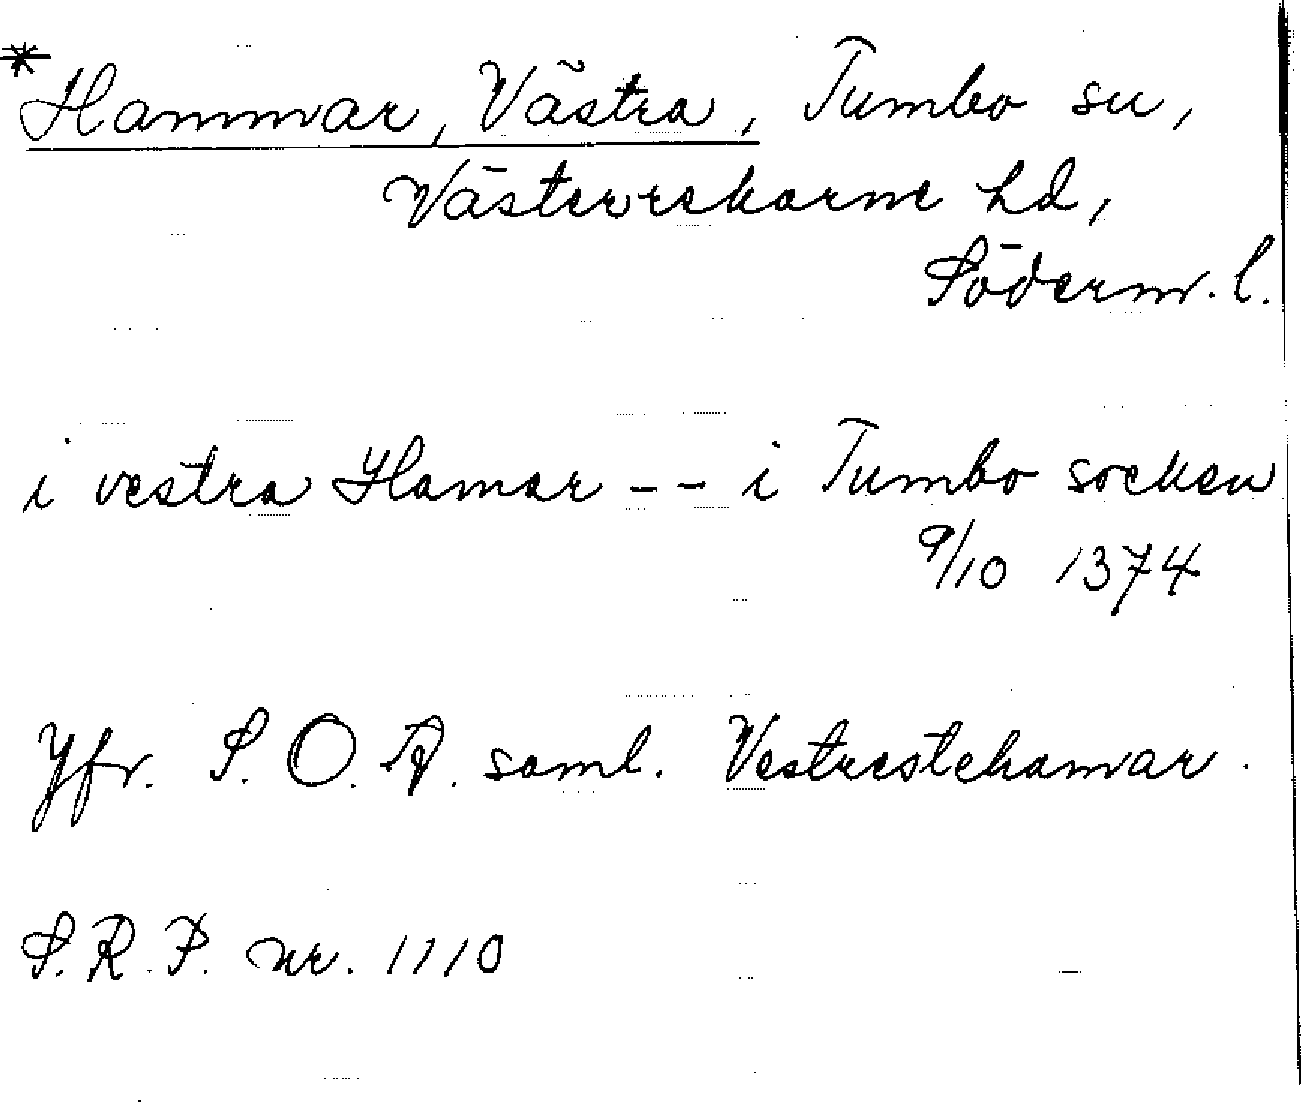 *Hammar, Västra, Tumbo sn,
Västerrekarne hd,
Söderm. l.
i vestra Hamar - - i Tumbo socken
9/10 1374
Yfr. S. O. A. saml. Vestrestehamar.
S. R. P. nr. 1110